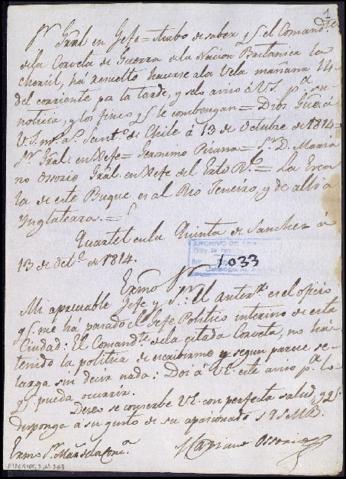 Sr. Gral en Jefe = Acabo de saber q.e el Comand.te
de la Corveta de Guerra de la Nacion Britanica la
ha resuelto hacerse a la Vela mañana 14
del corriente p.a la tarde, y lo aviso a V.S. p.a su
noticia, y los fines q.e le combengan = Dios gue. á
V.S. m.s a.s Sant.o de Chile á 13 de Octubre de 1814 =
Sr. Gral en Xefe = Geronimo Pizana = Sr. D. Maria
no Ossorio Gral en Xefe del Exto R.l = La Esca
la de este Buque es al Rio Geneiro, y de alli á
Ynglaterra. =
Quartel en la Quinta de Sanchez á
13 de Oct.e de 1814.
1033
Exmo Sr.
Mi apreciable Jefe y S.r: el anter.r es el oficio
q.e me ha pasado el Jefe Politico interino de esta
Ciudad: El Comand.te de la citada Corveta, no ha
tenido la politica de escribirme y segun parece se
larga sin decir nada: Doi á V.E. este aviso p.a lo
q.e pueda ocurrir.
Deseo se conserve V.E. con perfecta salud, y q.e
disponga a su gusto de su apasionado
Mariano Ossorio
Exmo S.r